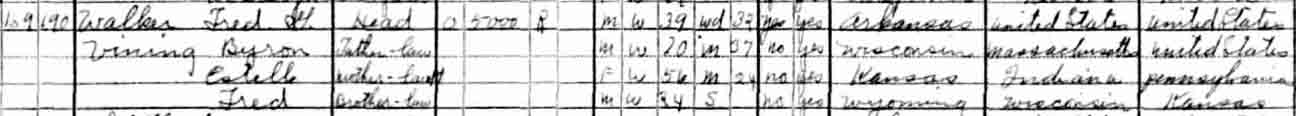 169 190 Walker Fred H Head O 5000 R M W 39 Wd 32 yes yes Arkansas United States United States
Vining Byron Father-law M W 70 M 37 no yes Wisconsin Massachusetts United States
Estelle Mother-law F W 56 M 24 no yes Kansas Indiana Pennsylvania
Fred Brother-law M W 24 S no yes Wyoming Wisconsin Kansas